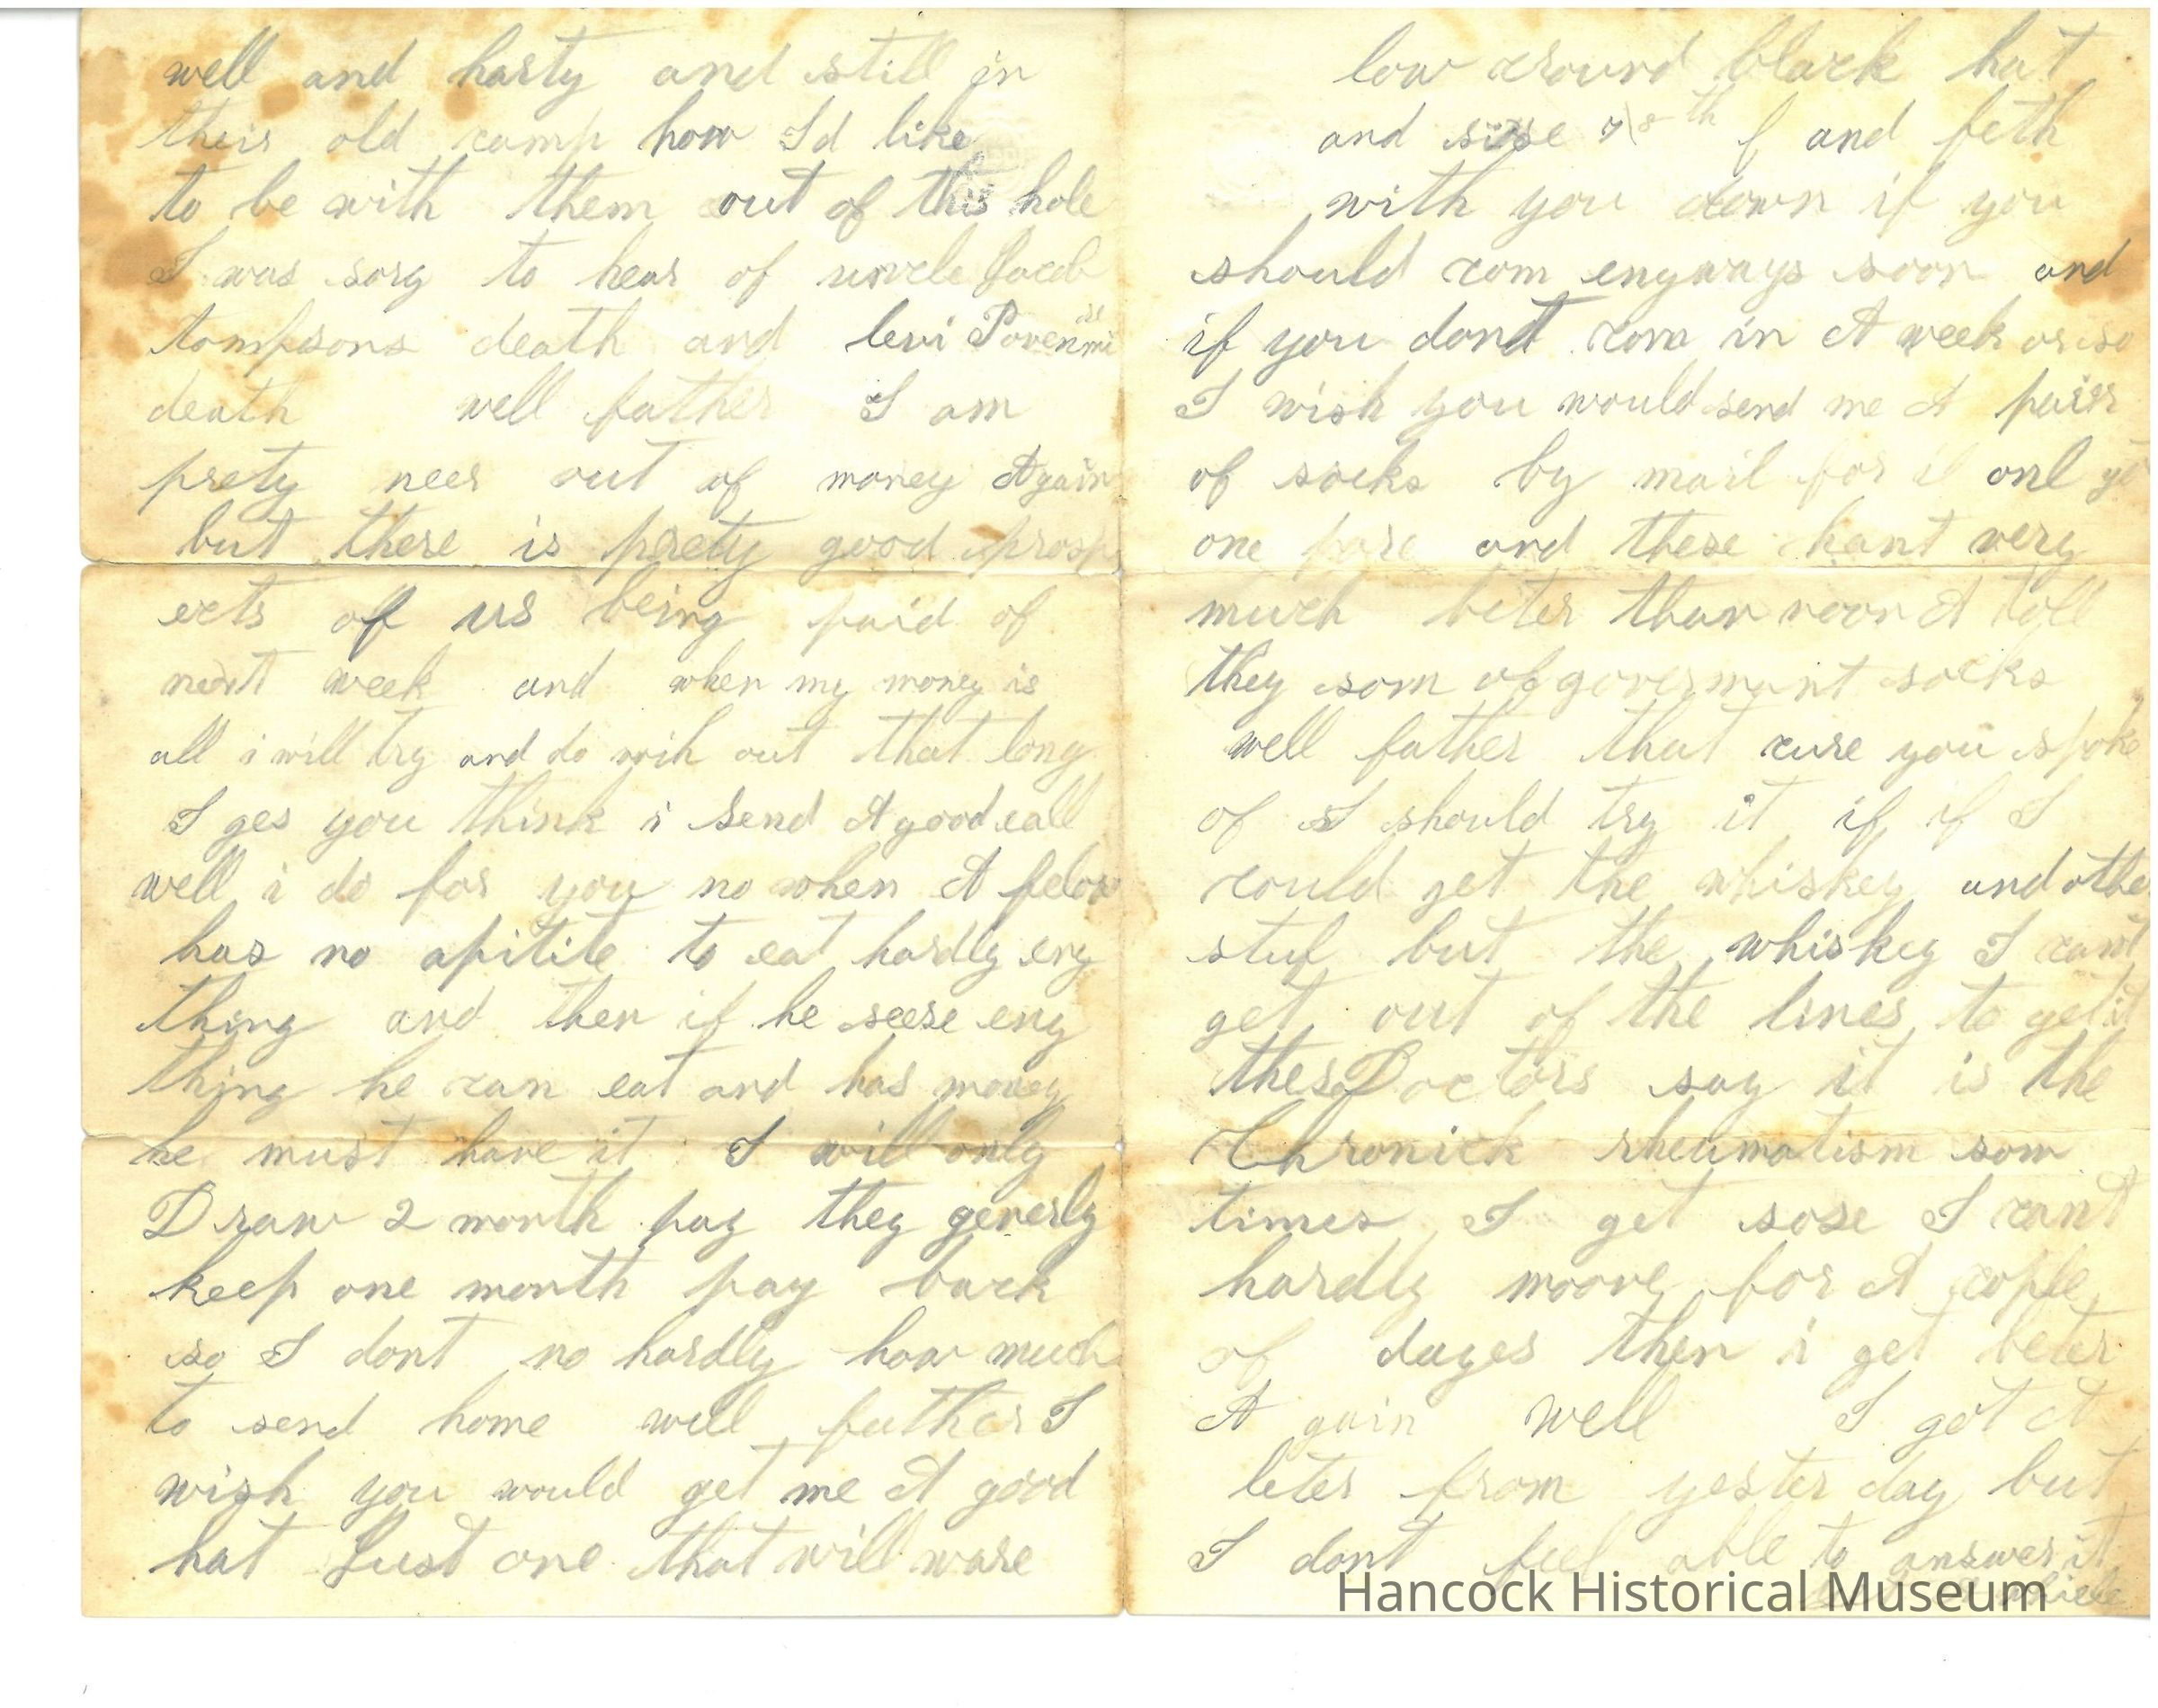 well and harty and still in
their old camp how Id like
to be with them out of this hole
I was sory to hear of uncle Jacob
tompsons death and levi Povenmires
death well father I am
prety neer out of money Again
but there is prety good prosp
ects of us being paid of
next week and when my money is
all i will try and do wih out that long
I ges you think i send A good eall
well i do for you no when A felow
has no apitite to eat hardly eny
thing and then if he seese eny
thing he can eat and has money
he must have it I will only
Draw 2 month pay they generly
keep one month pay back
so I dont no hardly how much
to send home well father I
wish you would get me A good
hat Just one that will ware
low cround black hat
and sise 7/8th f and feth
with you down if you
should com enyways soon and
if you dont com in A week or so
I wish you would send me A pairr
of socks by mail for i onl got
one pare and these hant very
much beter than noon A toll
they som of goverment socks
well father that cure you spoke
of I should try it if if I
could get the whiskey and othe
stuf but the whiskey I cant
get out of the lines to get it
these Doctors say it is the
Chronick rheumatism som
times I get sose I cant
hardly moove for A cople
of dayes then i get beter
A gain well I got A
leter from yester day but
I dont feel able to answer it
Hancock Historical Museum